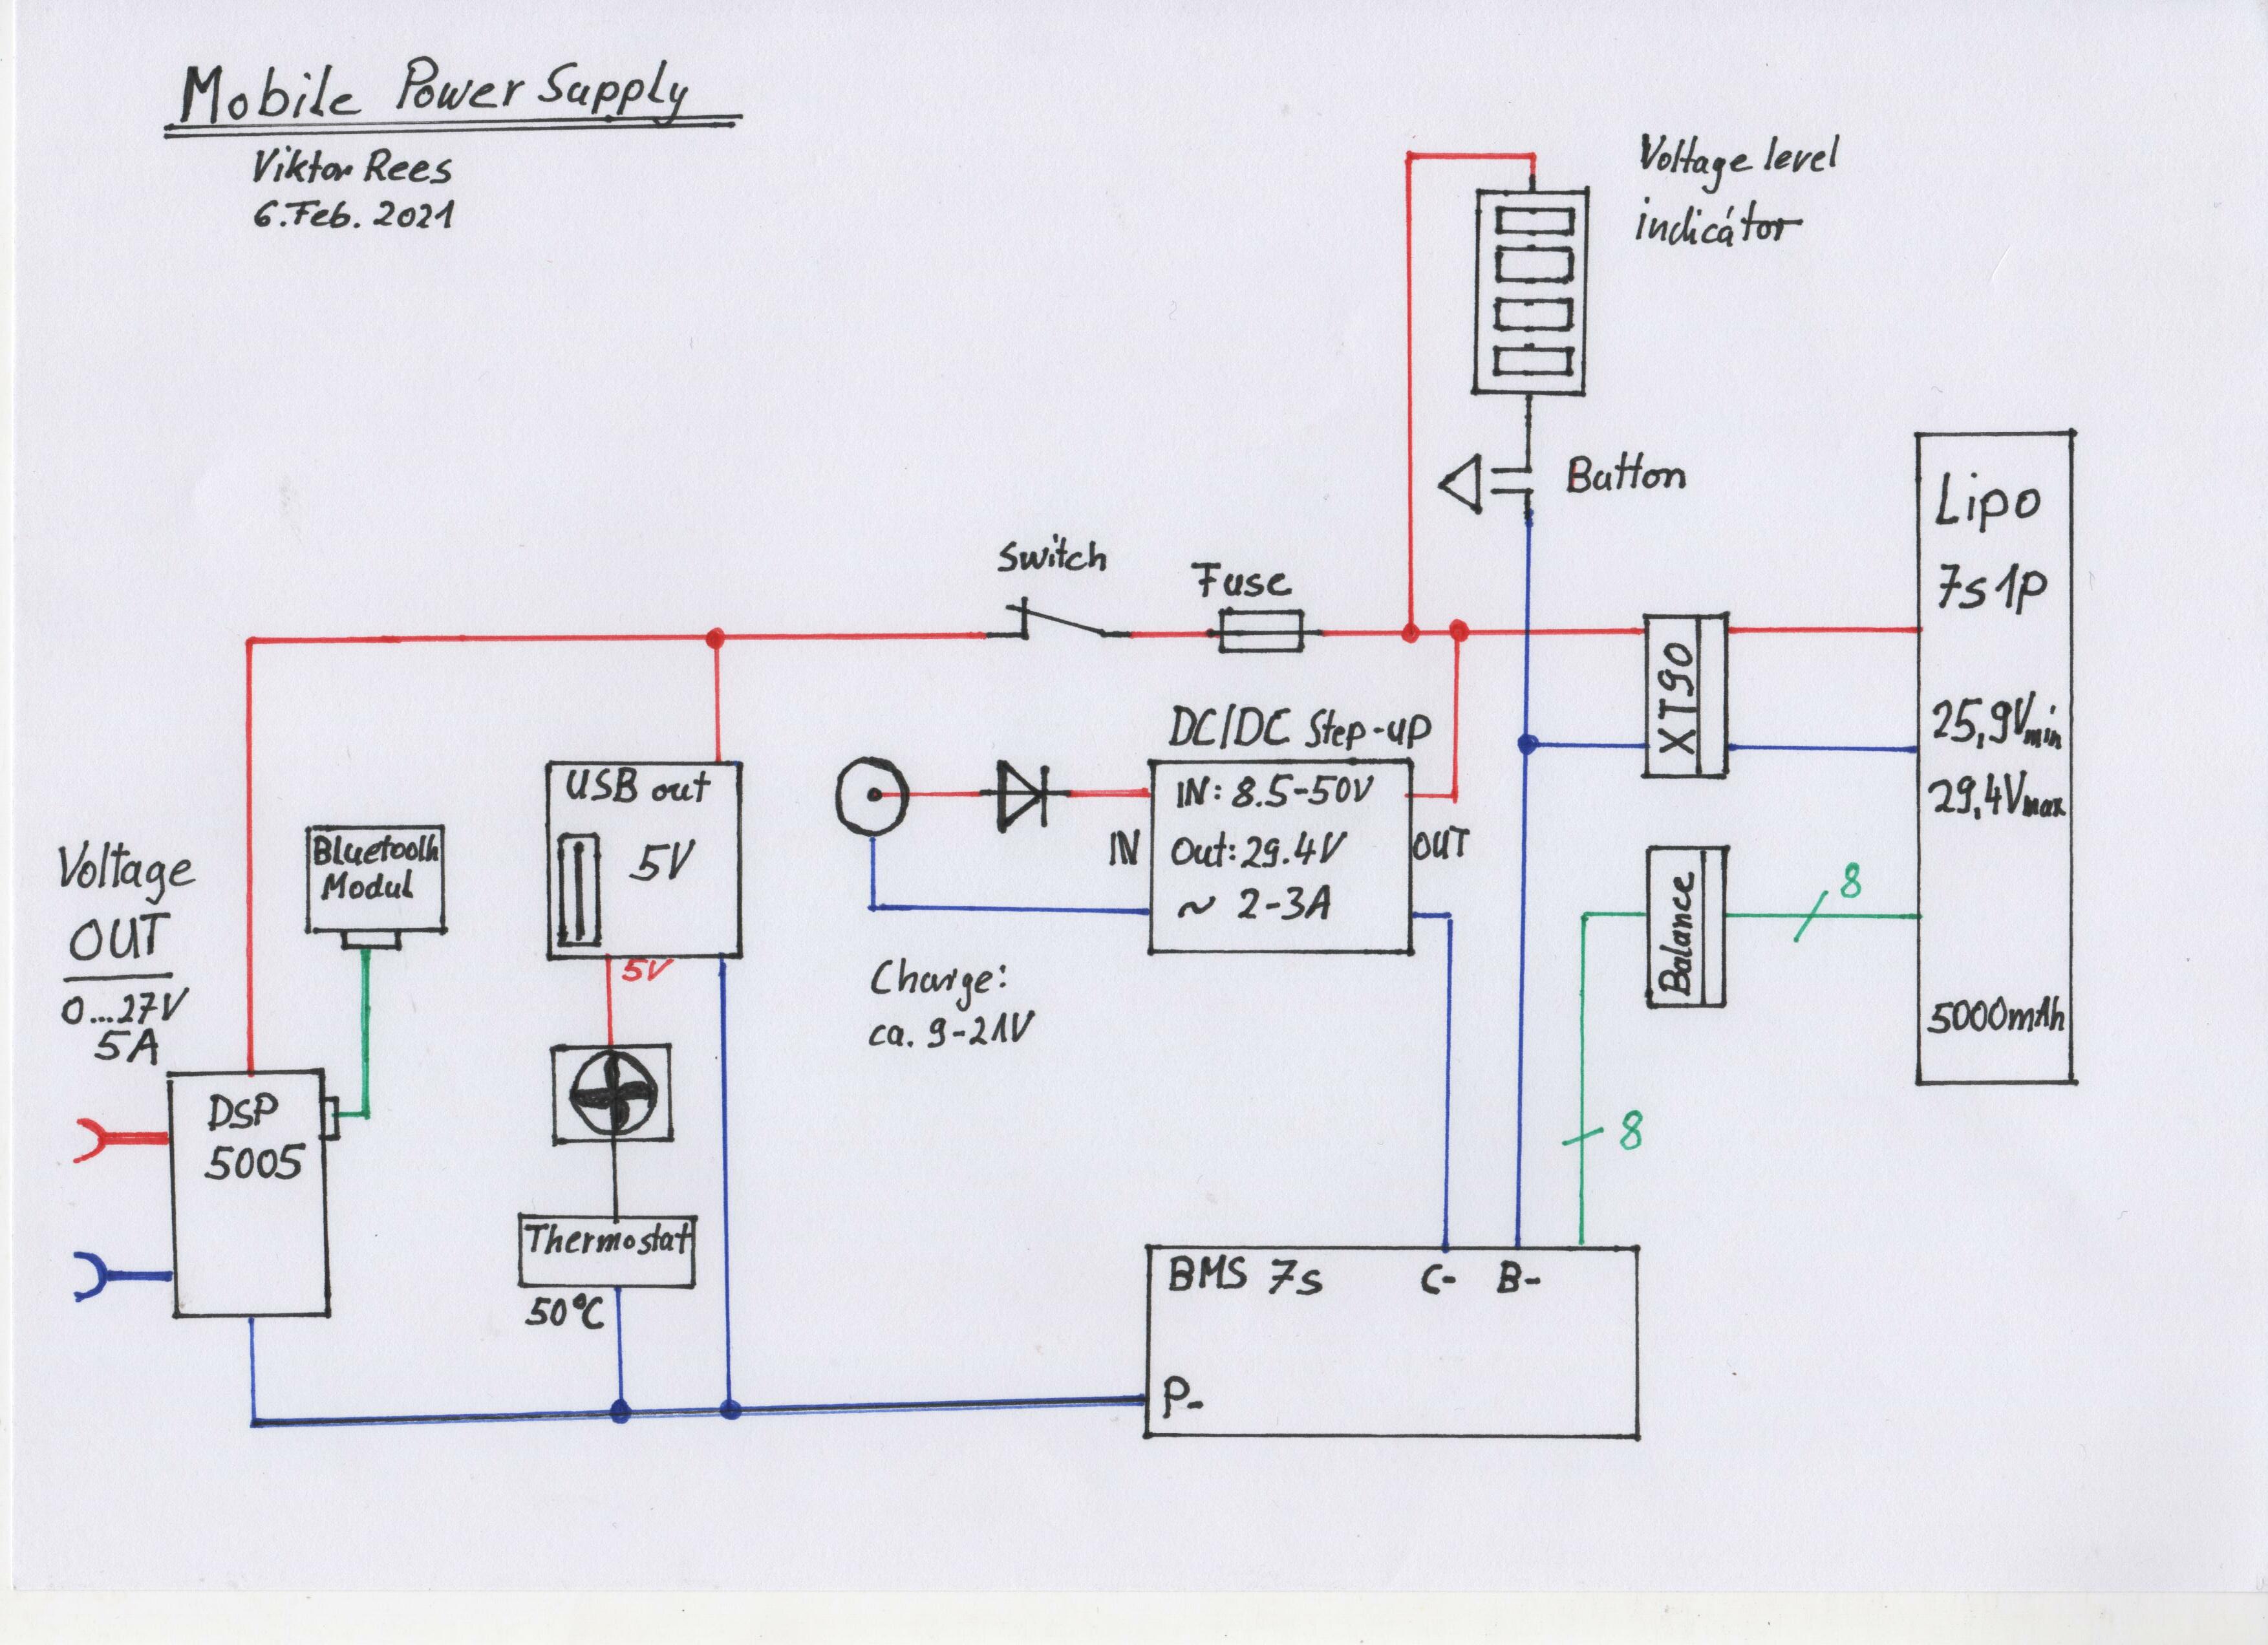 Mobile Power Supply
Viktor Rees
6. Feb. 2021
Voltage level
indicátor
Button
Switch
Fuse
Lipo
7s1p
25,9Vmin
29,4Vmax
5000mAh
XT90
Balance
8
8
DC/DC Step-up
IN: 8.5-50V
Out: 29.4V
~ 2-3A
IN
OUT
Charge:
ca. 9-21V
USB out
5V
5V
Bluetooth
Modul
Voltage
OUT
0...27V
5A
DSP
5005
Thermostat
50°C
BMS 7s
C-
B-
P-